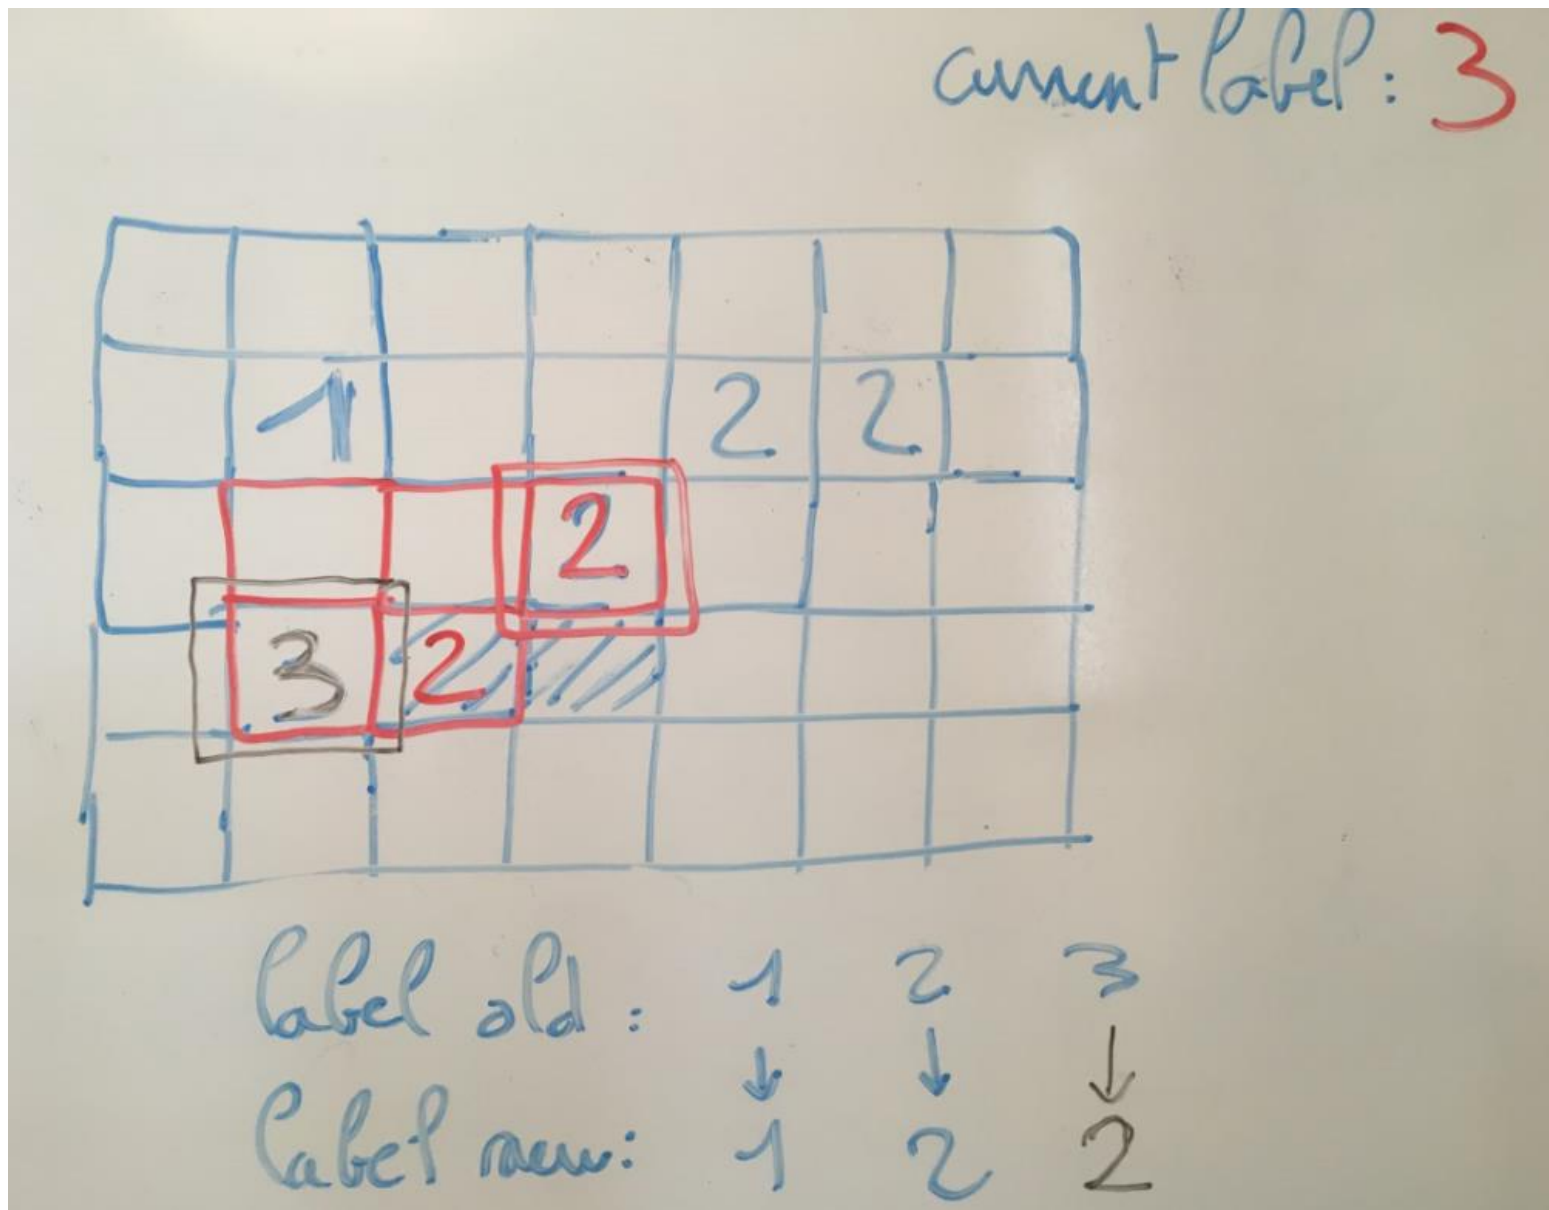 current label: 3
1 2 2
2
3 2
label old: 1 2 3
label new: 1 2 2